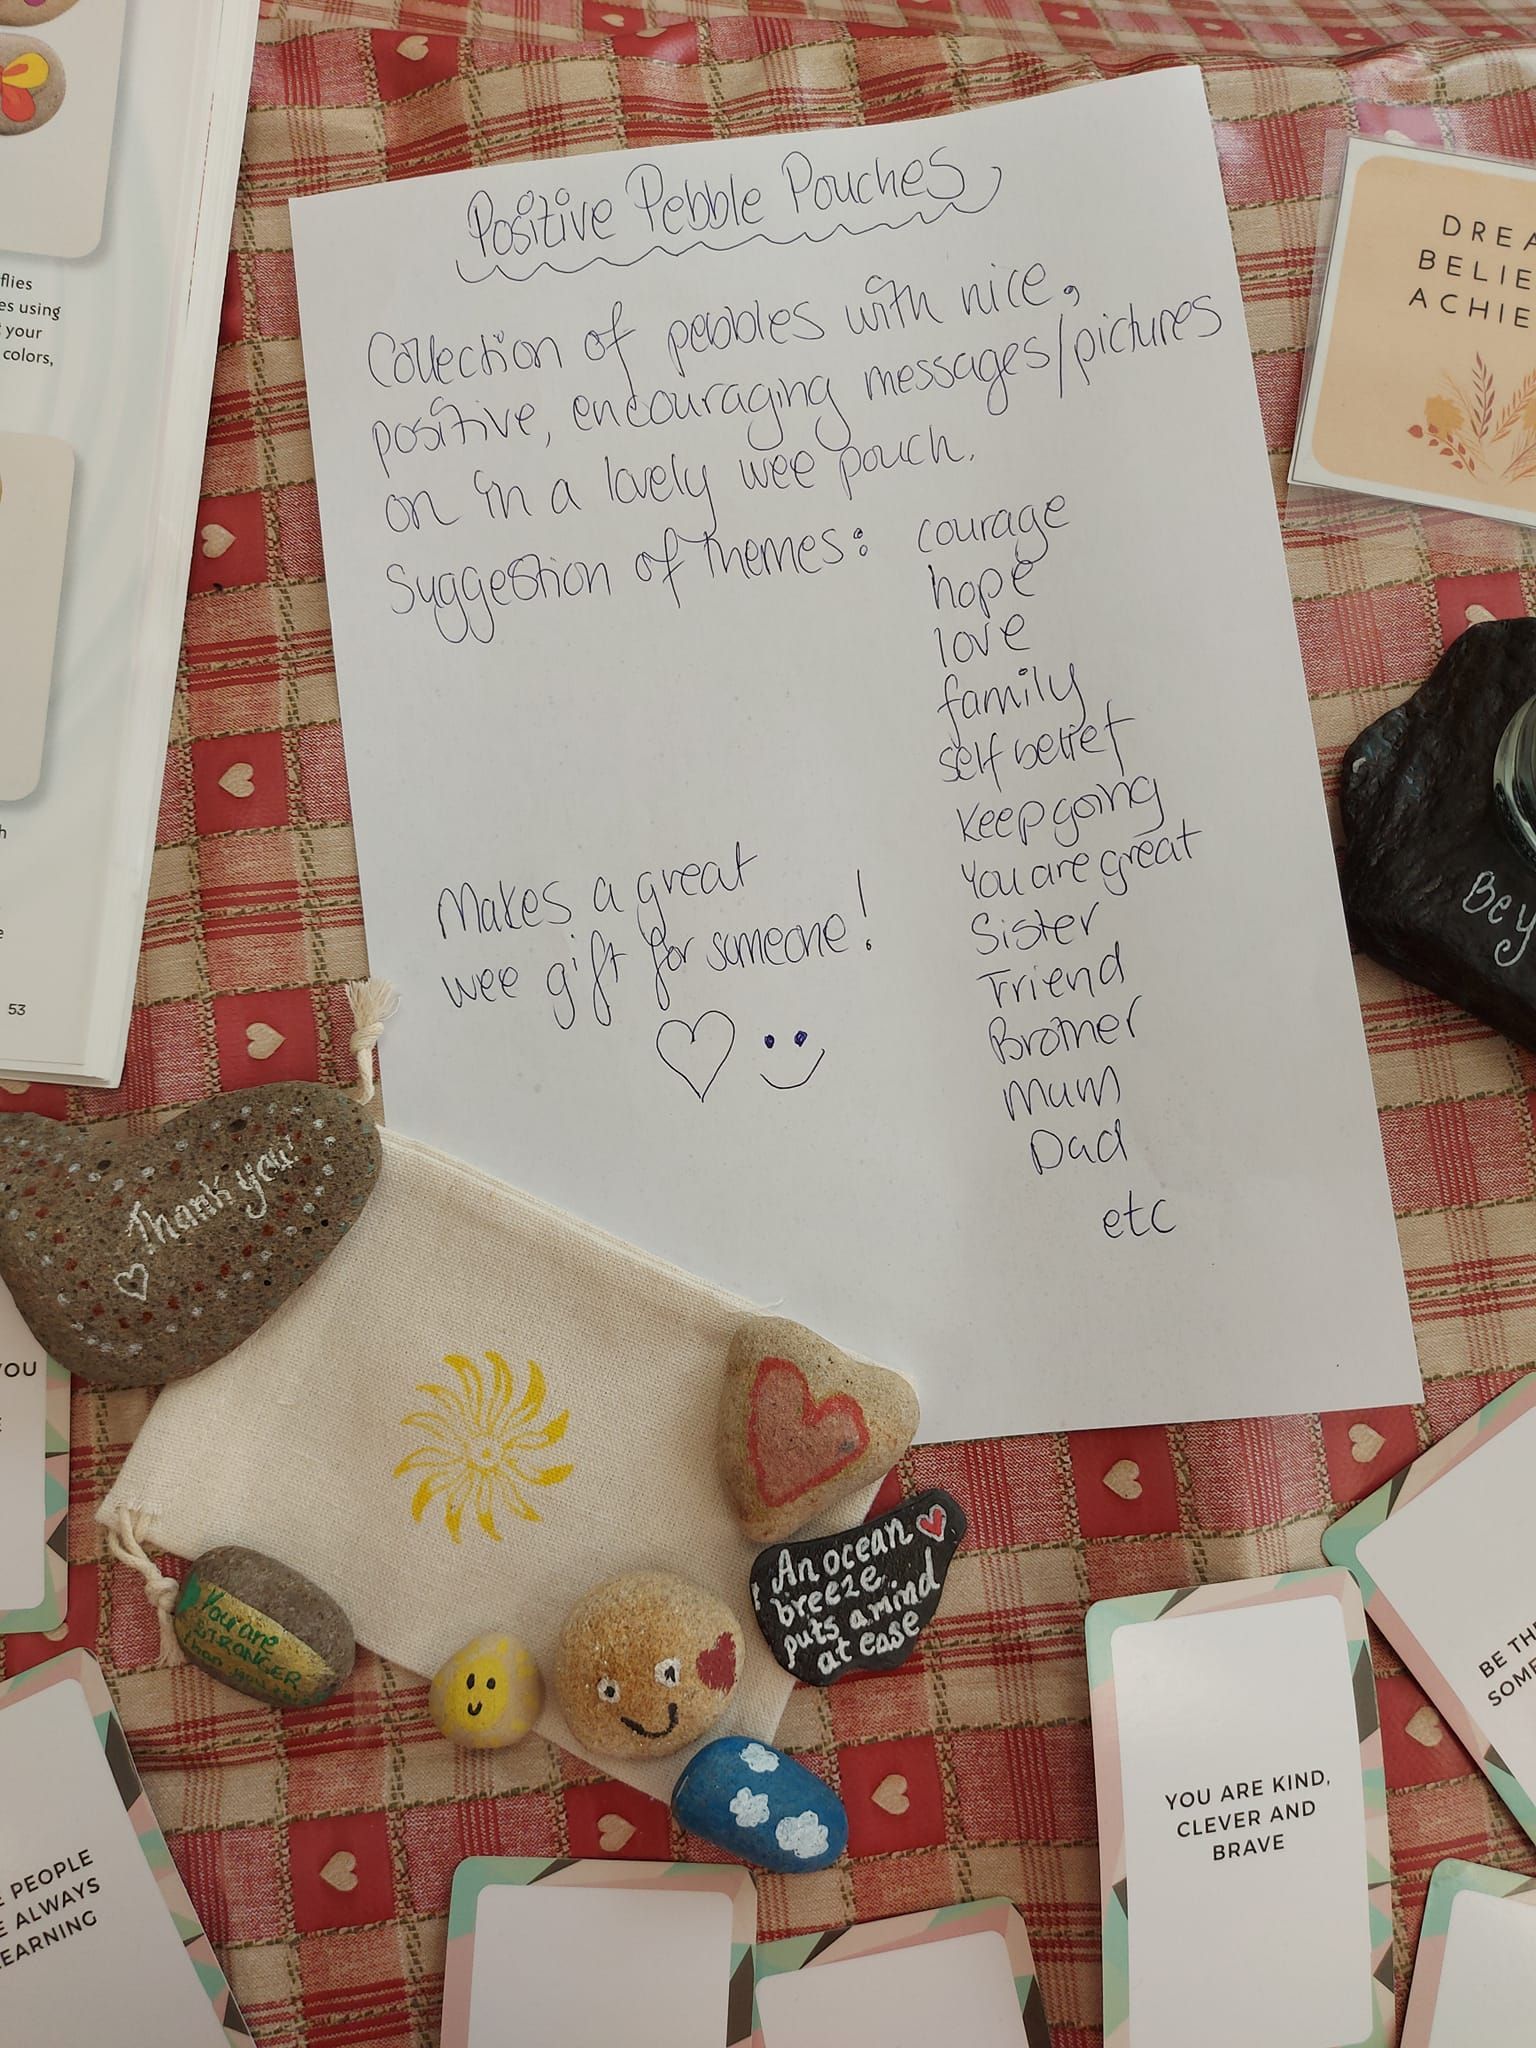 flies
es using
your
colors,
h
e
53
Positive Pebble Pouches
Collection of pebbles with nice,
positive, encouraging messages/pictures
on in a lovely wee pouch.
Suggestion of themes: courage
hope
love
family
self belief
Keep going
You are great
Sister
Friend
Brother
Mum
Dad
etc
Makes a great
wee gift for someone!
DREA
BELIE
ACHIE
Be y
Thank you!
You are
STRONGER
than you
An ocean
breeze
puts a mind
at ease
YOU
E
E PEOPLE
E ALWAYS
EARNING
YOU ARE KIND,
CLEVER AND
BRAVE
BE TH
SOME